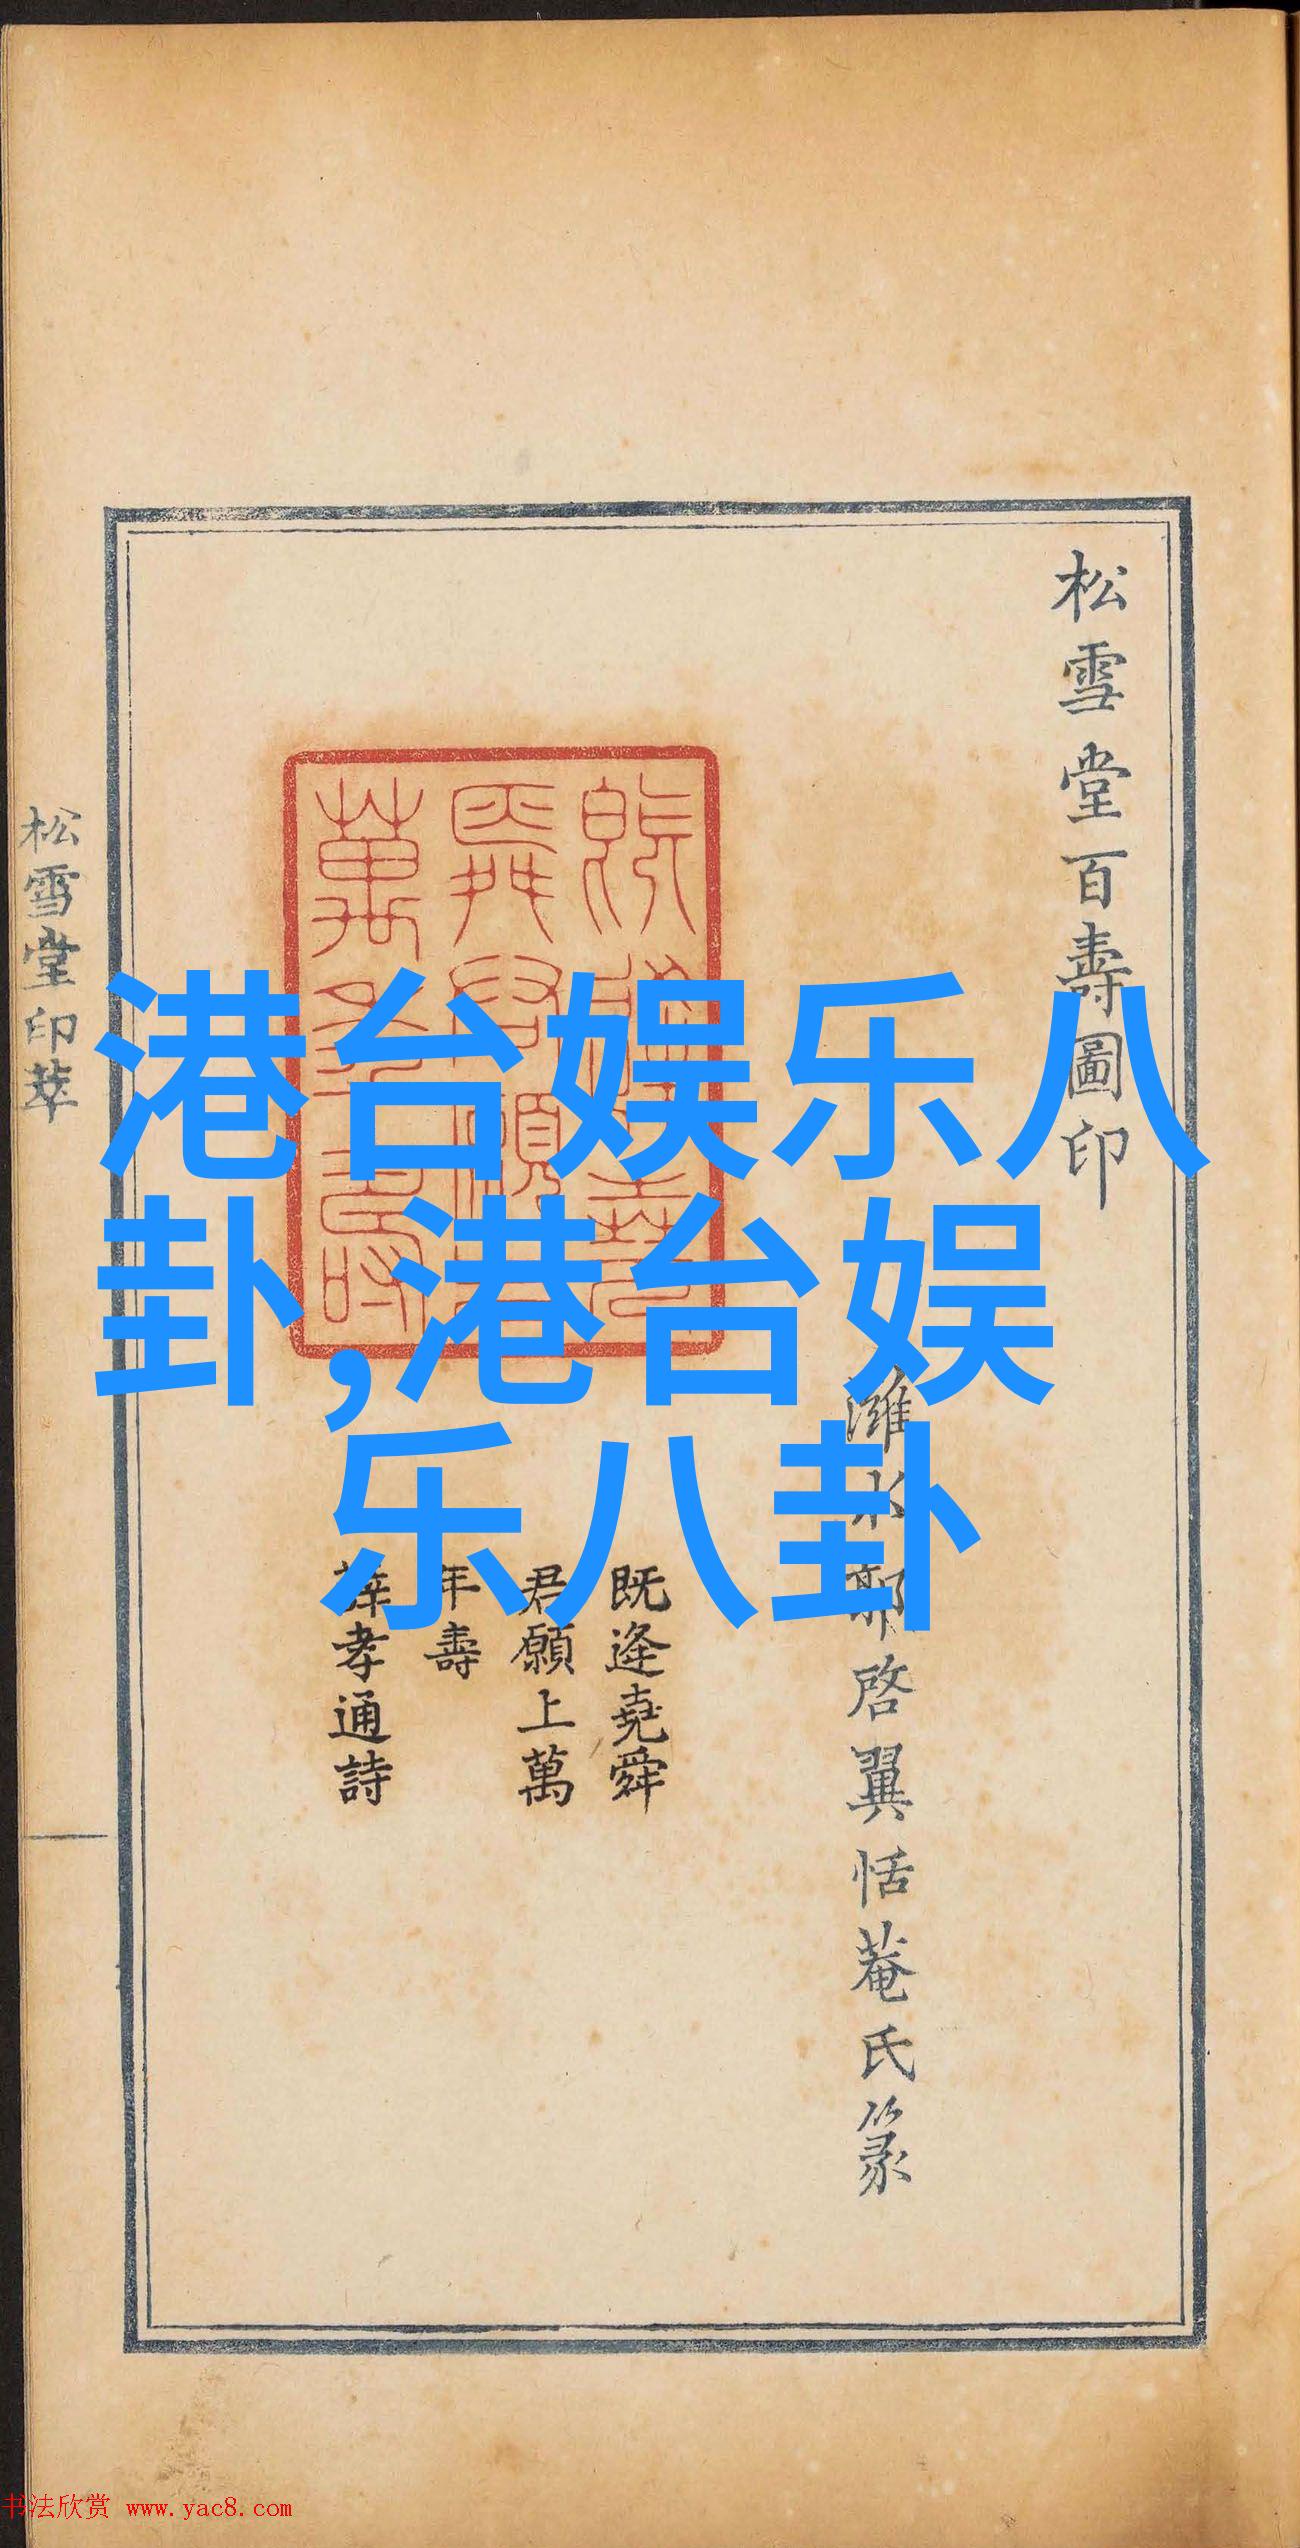 港台娱乐八
卦,港台娱
乐八卦
松雪堂百壽圖印
濰水郭啓翼恬菴氏篆
既逢堯舜
君願上萬
年壽
薛孝通詩
松雪堂印萃
书法欣赏 www.yac8.com